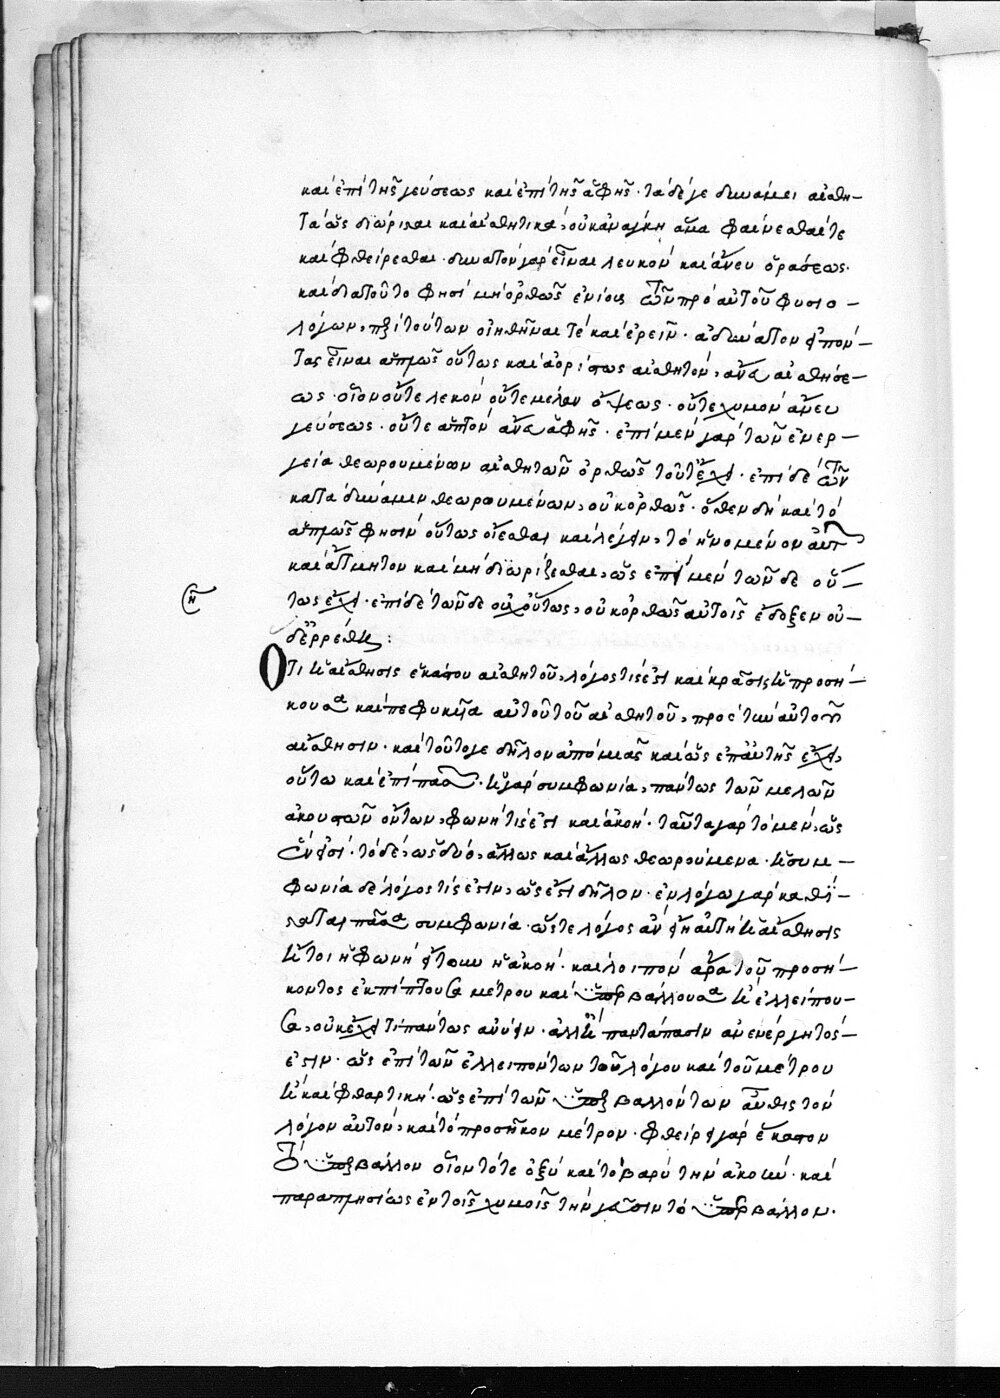 καὶ ἐπὶ τῆς γεύσεως καὶ ἐπὶ τῆς ἁφῆς· τὰ δέ γε δυνάμει αἰσθη-
τὰ ὡς διώρισται καὶ αἰσθητικὰ, οὐκ ἀνάγκη ἅμα φαίνεσθαί τε
καὶ φθείρεσθαι· δυνατὸν γὰρ εἶναι λευκὸν καὶ ἄνευ ὁράσεως·
καὶ διατοῦτο φησὶ μὴ ὀρθῶς ἐνίοις τῶν πρὸ αὐτοῦ φυσιο-
λόγων, περὶ τούτων οἰηθῆναι τὲ καὶ ἐρεῖν· ἀδυνάτον εἰπόν-
τας εἶναι ἁπλῶς οὕτως καὶ ἀορίστως αἰσθητὸν, ἄνευ αἰσθήσε-
ως· οἷον οὔτε λευκὸν οὔτε μέλαν ὄψεως· οὔτε χυμὸν ἄνευ
γεύσεως· οὔτε ἁπτὸν ἄνευ ἁφῆς· ἐπὶ μὲν γὰρ τῶν ἐνερ-
γεία θεωρουμένων αἰσθητῶν ὀρθῶς τοῦτ' ἔχει· ἐπὶ δὲ τῶν
κατὰ δύναμιν θεωρουμένων, οὐκ ὀρθῶς· ὅθεν δὴ καὶ τὸ
ἁπλῶς φησὶν οὕτως οἴεσθαι καὶ λέγειν, τὸ ἡνωμένον αὐτ
καὶ ἄτμητον καὶ μὴ διωρίζεσθαι, ὡς ἐπὶ μὲν τῶν δε οὕ-
τως ἔχει· ἐπὶ δὲ τῶν δε οὐχ οὕτως, οὐκ ὀρθῶς αὐτοῖς ἔδοξεν οὐ-
δ' ἐρρέθη:
Ὅτι ἡ αἴσθησις ἑκάστου αἰσθητοῦ, λόγος τίς ἐστι καὶ κρᾶσις ἡ προσή-
κουσα καὶ πεφυκῖα αὐτοῦ τοῦ αἰσθητοῦ, πρὸς τὴν αὐτοῦ
αἴσθησιν· καὶ τοῦτό γε δῆλον ἀπὸ μιᾶς καὶ ὡς ἐπ' αὐτῆς ἔχει,
οὕτω καὶ ἐπὶ πασῶν· ἡ γὰρ συμφωνία, πάντως τῶν μελῶν
ἀκουστῶν ὄντων, φωνή τίς ἐστι καὶ ἀκοή· ταῦτα γὰρ τὸ μὲν, ὡς
ἕν εἰσί· τὸ δὲ, ὡς δυό, ἄλλως καὶ ἄλλως θεωρούμενα· ἡ συμ-
φωνία δὲ λόγος τίς ἐστιν, ὡς ἐστι δῆλον· ἐν λόγω γὰρ καθί-
σταται πᾶσα συμφωνία· ὥστε λόγος ἂν εἴη αὐτὴ ἡ αἴσθησις
ἤτοι ἡ φωνὴ εἴτουν ἡ ἀκοή· καὶ λοιπὸν ἄρα τοῦ προσή-
κοντος ἐκπίπτουσα μέτρου καὶ ὑπερβάλλουσα ἢ ἐλλείπου-
σα, οὐκ ἔχει τί πάντως ἀνύειν· ἀλλ' ἢ παντάπασιν ἀνενέργητός
ἐστιν· ὡς ἐπὶ τῶν ἐλλειπόντων τοῦ λόγου καὶ τοῦ μέτρου
ἢ καὶ φθαρτική· ὡς ἐπὶ τῶν ὑπερβαλλόντων αὖθις τὸν
λόγον αὐτὸν, καὶ τὸ προσῆκον μέτρον· φθείρει γὰρ ἕκαστον
τὸ ὑπερβάλλον οἷον τό τε ὀξὺ καὶ τὸ βαρὺ τὴν ἀκοὴν· καὶ
παραπλησίως ἐν τοῖς χυμοῖς τὴν γεῦσιν τὸ ὑπερβάλλον·